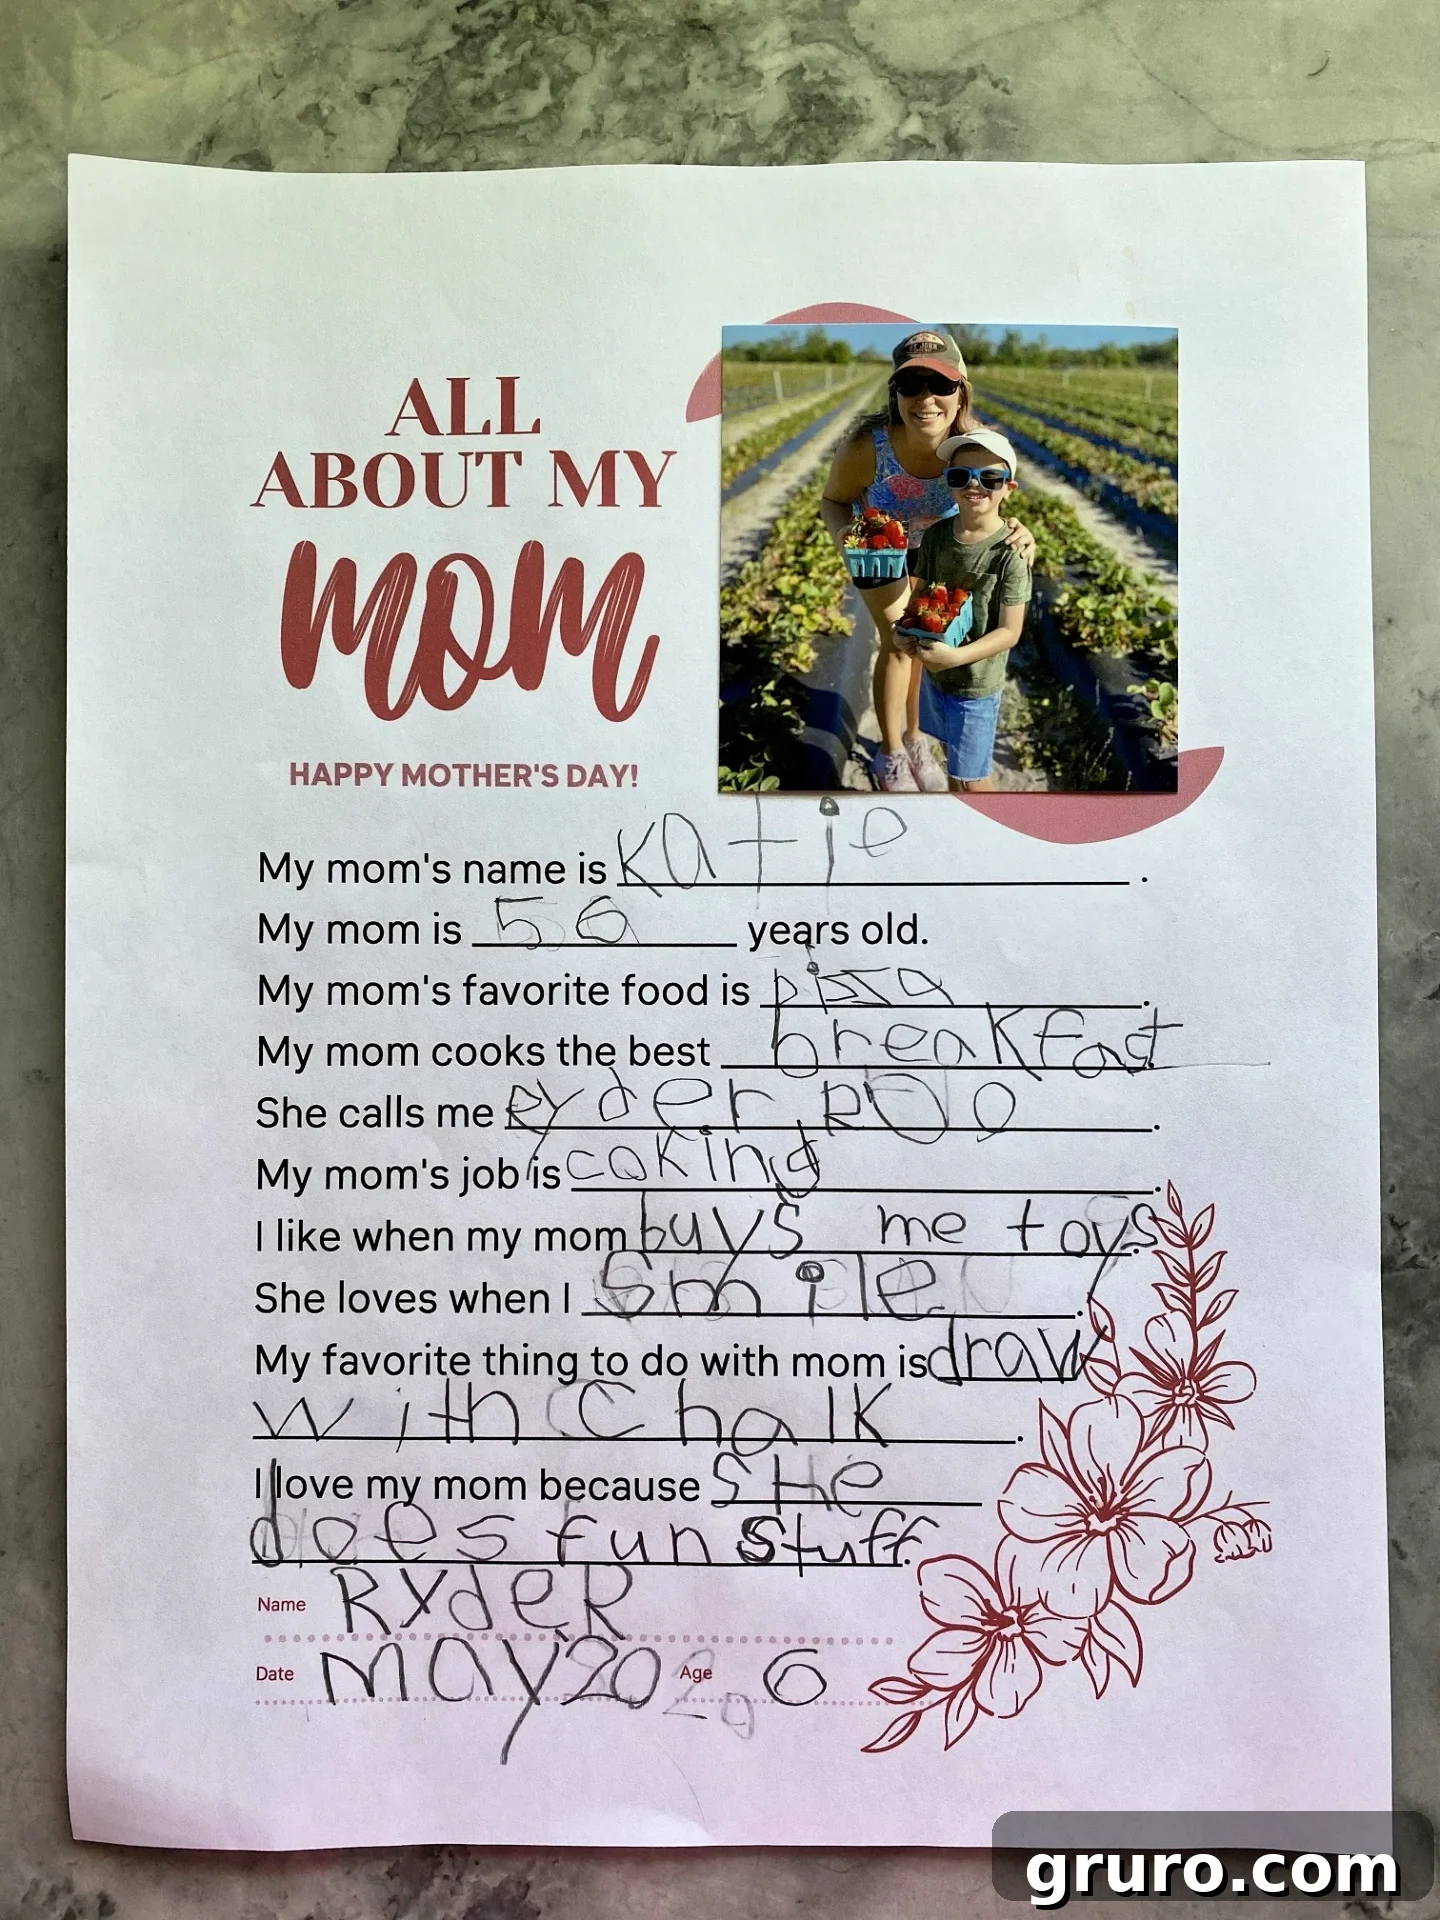 ALL
ABOUT MY
mom
HAPPY MOTHER'S DAY!
My mom's name is Katie.
My mom is 56 years old.
My mom's favorite food is pizza.
My mom cooks the best breakfast
She calls me Ryder ROO.
My mom's job is cokind.
I like when my mom buys me toys.
She loves when I Smile.
My favorite thing to do with mom is draw
with Chalk.
I love my mom because SHe
does fun stuff.
Name RYdeR
Date may 20 Age 6
gruro.com